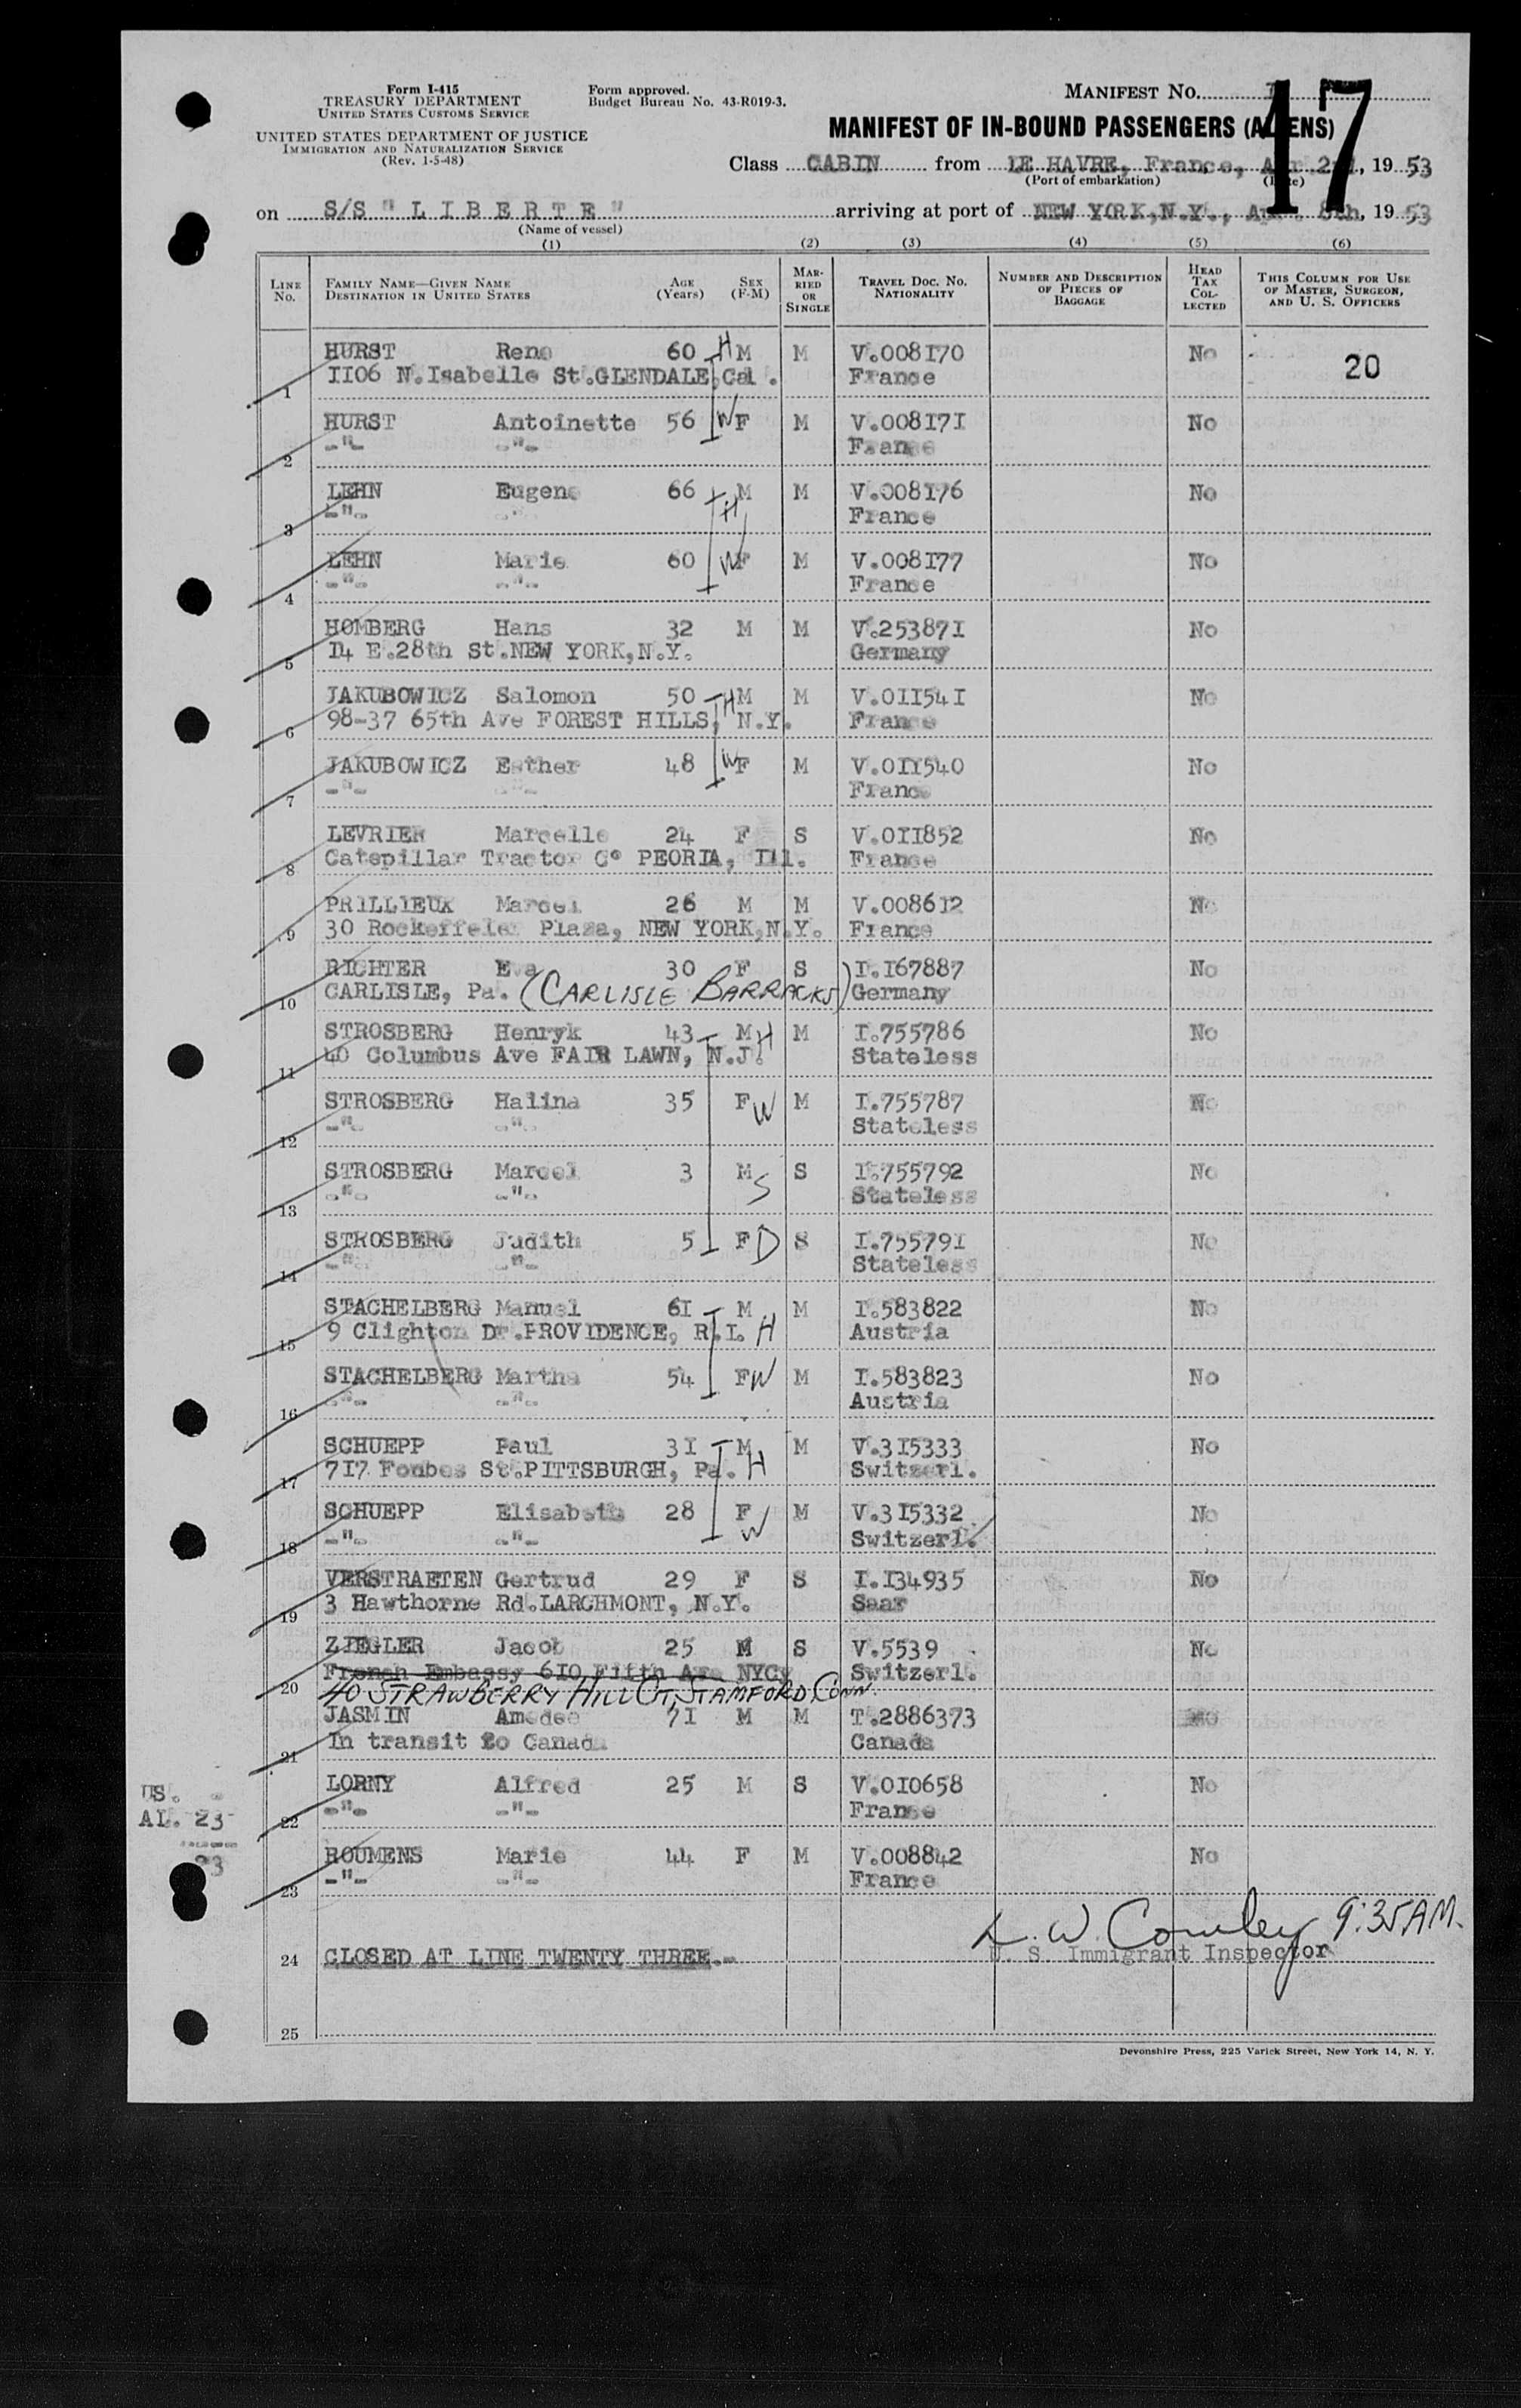 Form I-415
TREASURY DEPARTMENT
UNITED STATES CUSTOMS SERVICE
UNITED STATES DEPARTMENT OF JUSTICE
IMMIGRATION AND NATURALIZATION SERVICE
(Rev. 1-5-48)
Form approved.
Budget Bureau No. 43-R019-3.
MANIFEST NO.
17
MANIFEST OF IN-BOUND PASSENGERS (ALIENS)
Class CABIN from LE HAVRE, France, Apr 2nd, 1953
(Port of embarkation) (Date)
on S/S "LIBERTE" arriving at port of NEW YORK, N.Y., Apr. 8th, 1953
(Name of vessel)
(1) (2) (3) (4) (5) (6)
LINE No. FAMILY NAME—GIVEN NAME DESTINATION IN UNITED STATES AGE (Years) SEX (F-M) MARRIED OR SINGLE TRAVEL DOC. NO. NATIONALITY NUMBER AND DESCRIPTION OF PIECES OF BAGGAGE HEAD TAX COLLECTED THIS COLUMN FOR USE OF MASTER, SURGEON, AND U. S. OFFICERS
HURST Rene 60 H M M V.008I70 No 20
1 II06 N.Isabelle St.GLENDALE,Cal. France
HURST Antoinette 56 W F M V.008I7I No
2 -"- -"- France
LEHN Eugene 66 M M V.008I76 No
3 -"- -"- H France
LEHN Marie 60 W F M V.008I77 No
4 -"- -"- France
HOMBERG Hans 32 M M V.25387I No
5 I4 E.28th St.NEW YORK,N.Y. Germany
JAKUBOWICZ Salomon 50 H M M V.0II54I No
6 98-37 65th Ave FOREST HILLS, N.Y. France
JAKUBOWICZ Esther 48 W F M V.0II540 No
7 -"- -"- France
LEVRIER Marcelle 24 F S V.0II852 No
8 Catepillar Tractor C° PEORIA, Ill. France
PRILLIEUX Marcel 26 M M V.0086I2 No
9 30 Rockerfeler Plaza, NEW YORK,N.Y. France
RICHTER Eva 30 F S I.I67887 No
10 CARLISLE, Pa. (CARLISLE BARRACKS) Germany
STROSBERG Henryk 43 M H M I.755786 No
11 40 Columbus Ave FAIR LAWN, N.J. Stateless
STROSBERG Halina 35 F W M I.755787 No
12 -"- -"- Stateless
STROSBERG Marcel 3 M S S I.755792 No
13 -"- -"- Stateless
STROSBERG Judith 5 F D S I.75579I No
14 -"- -"- Stateless
STACHELBERG Manuel 6I M M I.583822 No
15 9 Clighton Dr.PROVIDENCE, R.I. H Austria
STACHELBERG Martha 54 F W M I.583823 No
16 -"- -"- Austria
SCHUEPP Paul 3I M M V.3I5333 No
17 7I7 Fonbes St.PITTSBURGH, Pa. H Switzerl.
SCHUEPP Elisabeth 28 F W M V.3I5332 No
18 -"- -"- Switzerl.
VERSTRAETEN Gertrud 29 F S I.I34935 No
19 3 Hawthorne Rd.LARCHMONT, N.Y. Saar
ZIEGLER Jacob 25 M S V.5539 No
20 French Embassy 6I0 Fifth Ave NYCy Switzerl.
40 STRAWBERRY HILL CT, STAMFORD, CONN.
JASMIN Amedee 7I M M T.2886373 No
21 In transit to Canada Canada
LORNY Alfred 25 M S V.0I0658 No
22 -"- -"- France
ROUMENS Marie 44 F M V.008842 No
23 -"- -"- France
US. -
AL. 23
23
L. W. Conley 9:35 AM.
U. S. Immigrant Inspector
24 CLOSED AT LINE TWENTY THREE.-
25
Devonshire Press, 225 Varick Street, New York 14, N. Y.